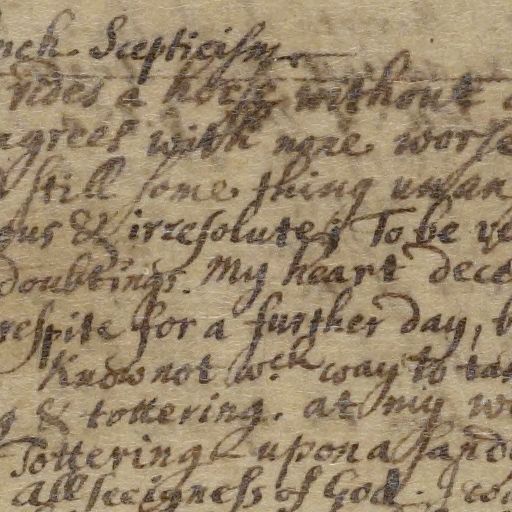 Scepticism
rides a horse without
agrees with none worse
still some thing
& irresolute To be
doubtings. My heart
respite for a further day,
Know not wch way to
& tottering. at my
Tottering upon a
Allseeigness of God.